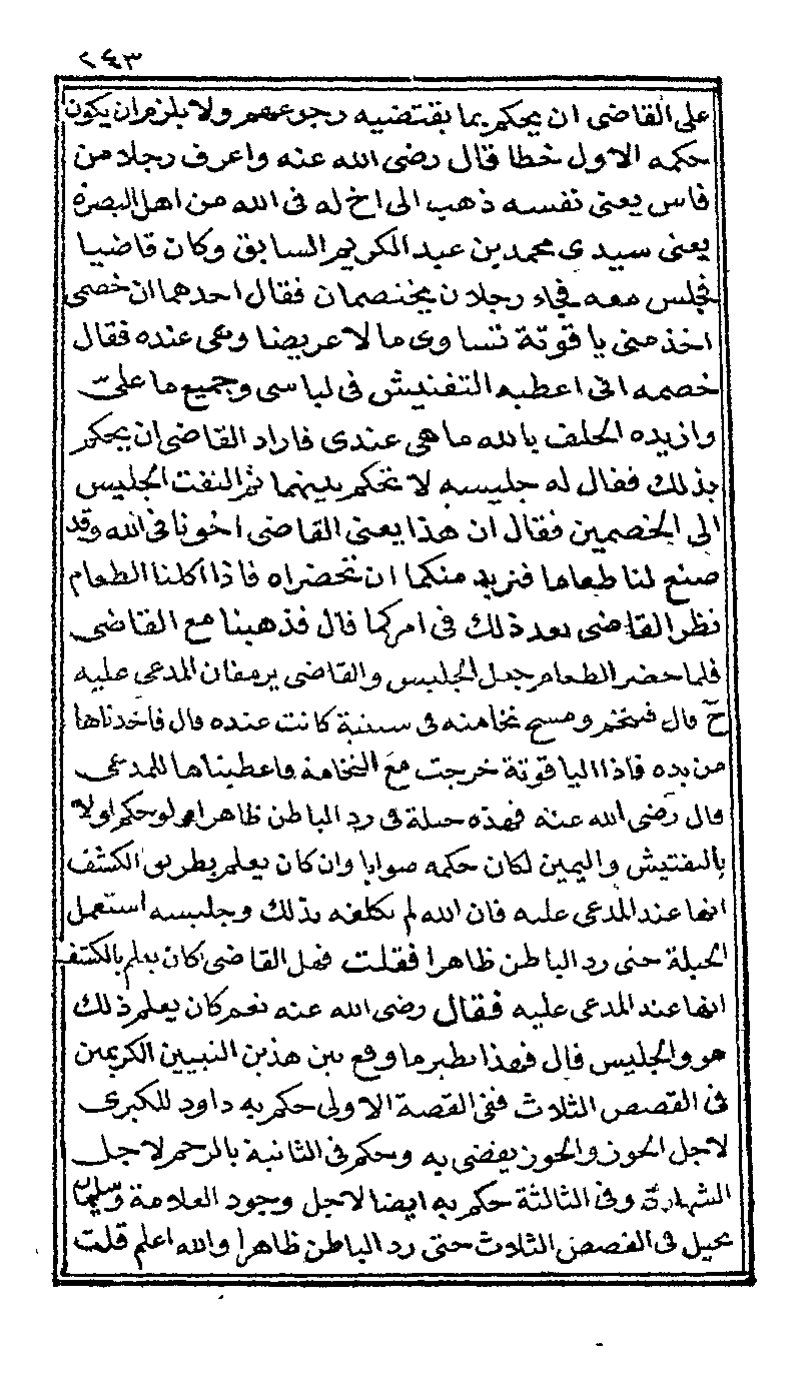 ٢٤٣
على القاضى ان يحكم بما يقتضيه رجوعهم ولا يلزم ان يكون
حكمه الاول خطا قال رضى الله عنه واعرف رجلا من
فاس يعنى نفسه ذهب الى اخ له فى الله من اهل البصرة
يعنى سيدى محمد بن عبد الكريم السابق وكان قاضيا
فجلس معه فجاء رجلان يختصمان فقال احدهما ان خصمى
اخذ منى ياقوتة تساوى مالا عريضا وهى عنده فقال
خصمه انى اعطيه التفتيش فى لباسى وجميع ما علىّ
وازيده الحلف بالله ما هى عندى فاراد القاضى ان يحكم
بذلك فقال له جليسه لا تحكم بينهما ثم التفت الجليس
الى الخصمين فقال ان هذا يعنى القاضى اخونا فى الله وقد
صنع لنا طعاما فنريد منكما ان تحضراه فاذا اكلنا الطعام
نظر القاضى بعد ذلك فى امركما قال فذهبنا مع القاضى
فلما حضر الطعام جعل الجليس والقاضى يرمقان المدعى عليه
حّ قال فتنخم ومسح نخامته فى سبنية كانت عنده قال فاخذناها
من يده فاذا الياقوتة خرجت مع النخامة فاعطيناها للمدعى
قال رضى الله عنه فهذه حيلة فى رد الباطن ظاهرا ولو حكم اولا
بالتفتيش واليمين لكان حكمه صوابا وان كان يعلم بطريق الكشف
انها عند المدعى عليه فان الله لم يكلفه بذلك وجليسه استعمل
الحيلة حتى رد الباطن ظاهرا فقلت فهل القاضى كان يعلم بالكشف
انها عند المدعى عليه فقال رضى الله عنه نعم كان يعلم ذلك
هو والجليس قال فهذا نظير ما وقع بين هذين النبيين الكريمين
فى القصص الثلاث ففى القصة الاولى حكم به داود للكبرى
لاجل الحوز والحوز يقضى به وحكم فى الثانية بالرجم لاجل
الشهادة وفى الثالثة حكم به ايضا لاجل وجود العلامة وسليمان
يحيل فى القصص الثلاث حتى رد الباطن ظاهرا والله اعلم قلت